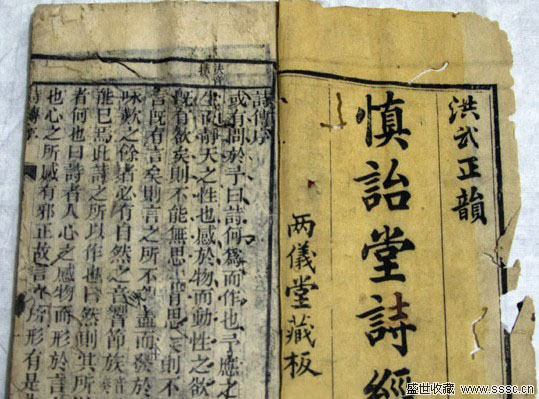 洪武正韻
慎詒堂詩經
两儀堂藏板
詩傳序
或有問於予曰詩何爲而作也予應之
生而靜天之性也感於物而動性之欲
既有欲矣則不能無思既有思矣則不
言既有言矣則言之所不盡而發於
咏歎之餘者必有自然之音響節族
能已焉此詩之所以作也曰然則其所
者何也曰詩者人心之感物而形於言
也心之所感有邪正故言之所形有是
詩傳序
盛世收藏
www.sssc.cn